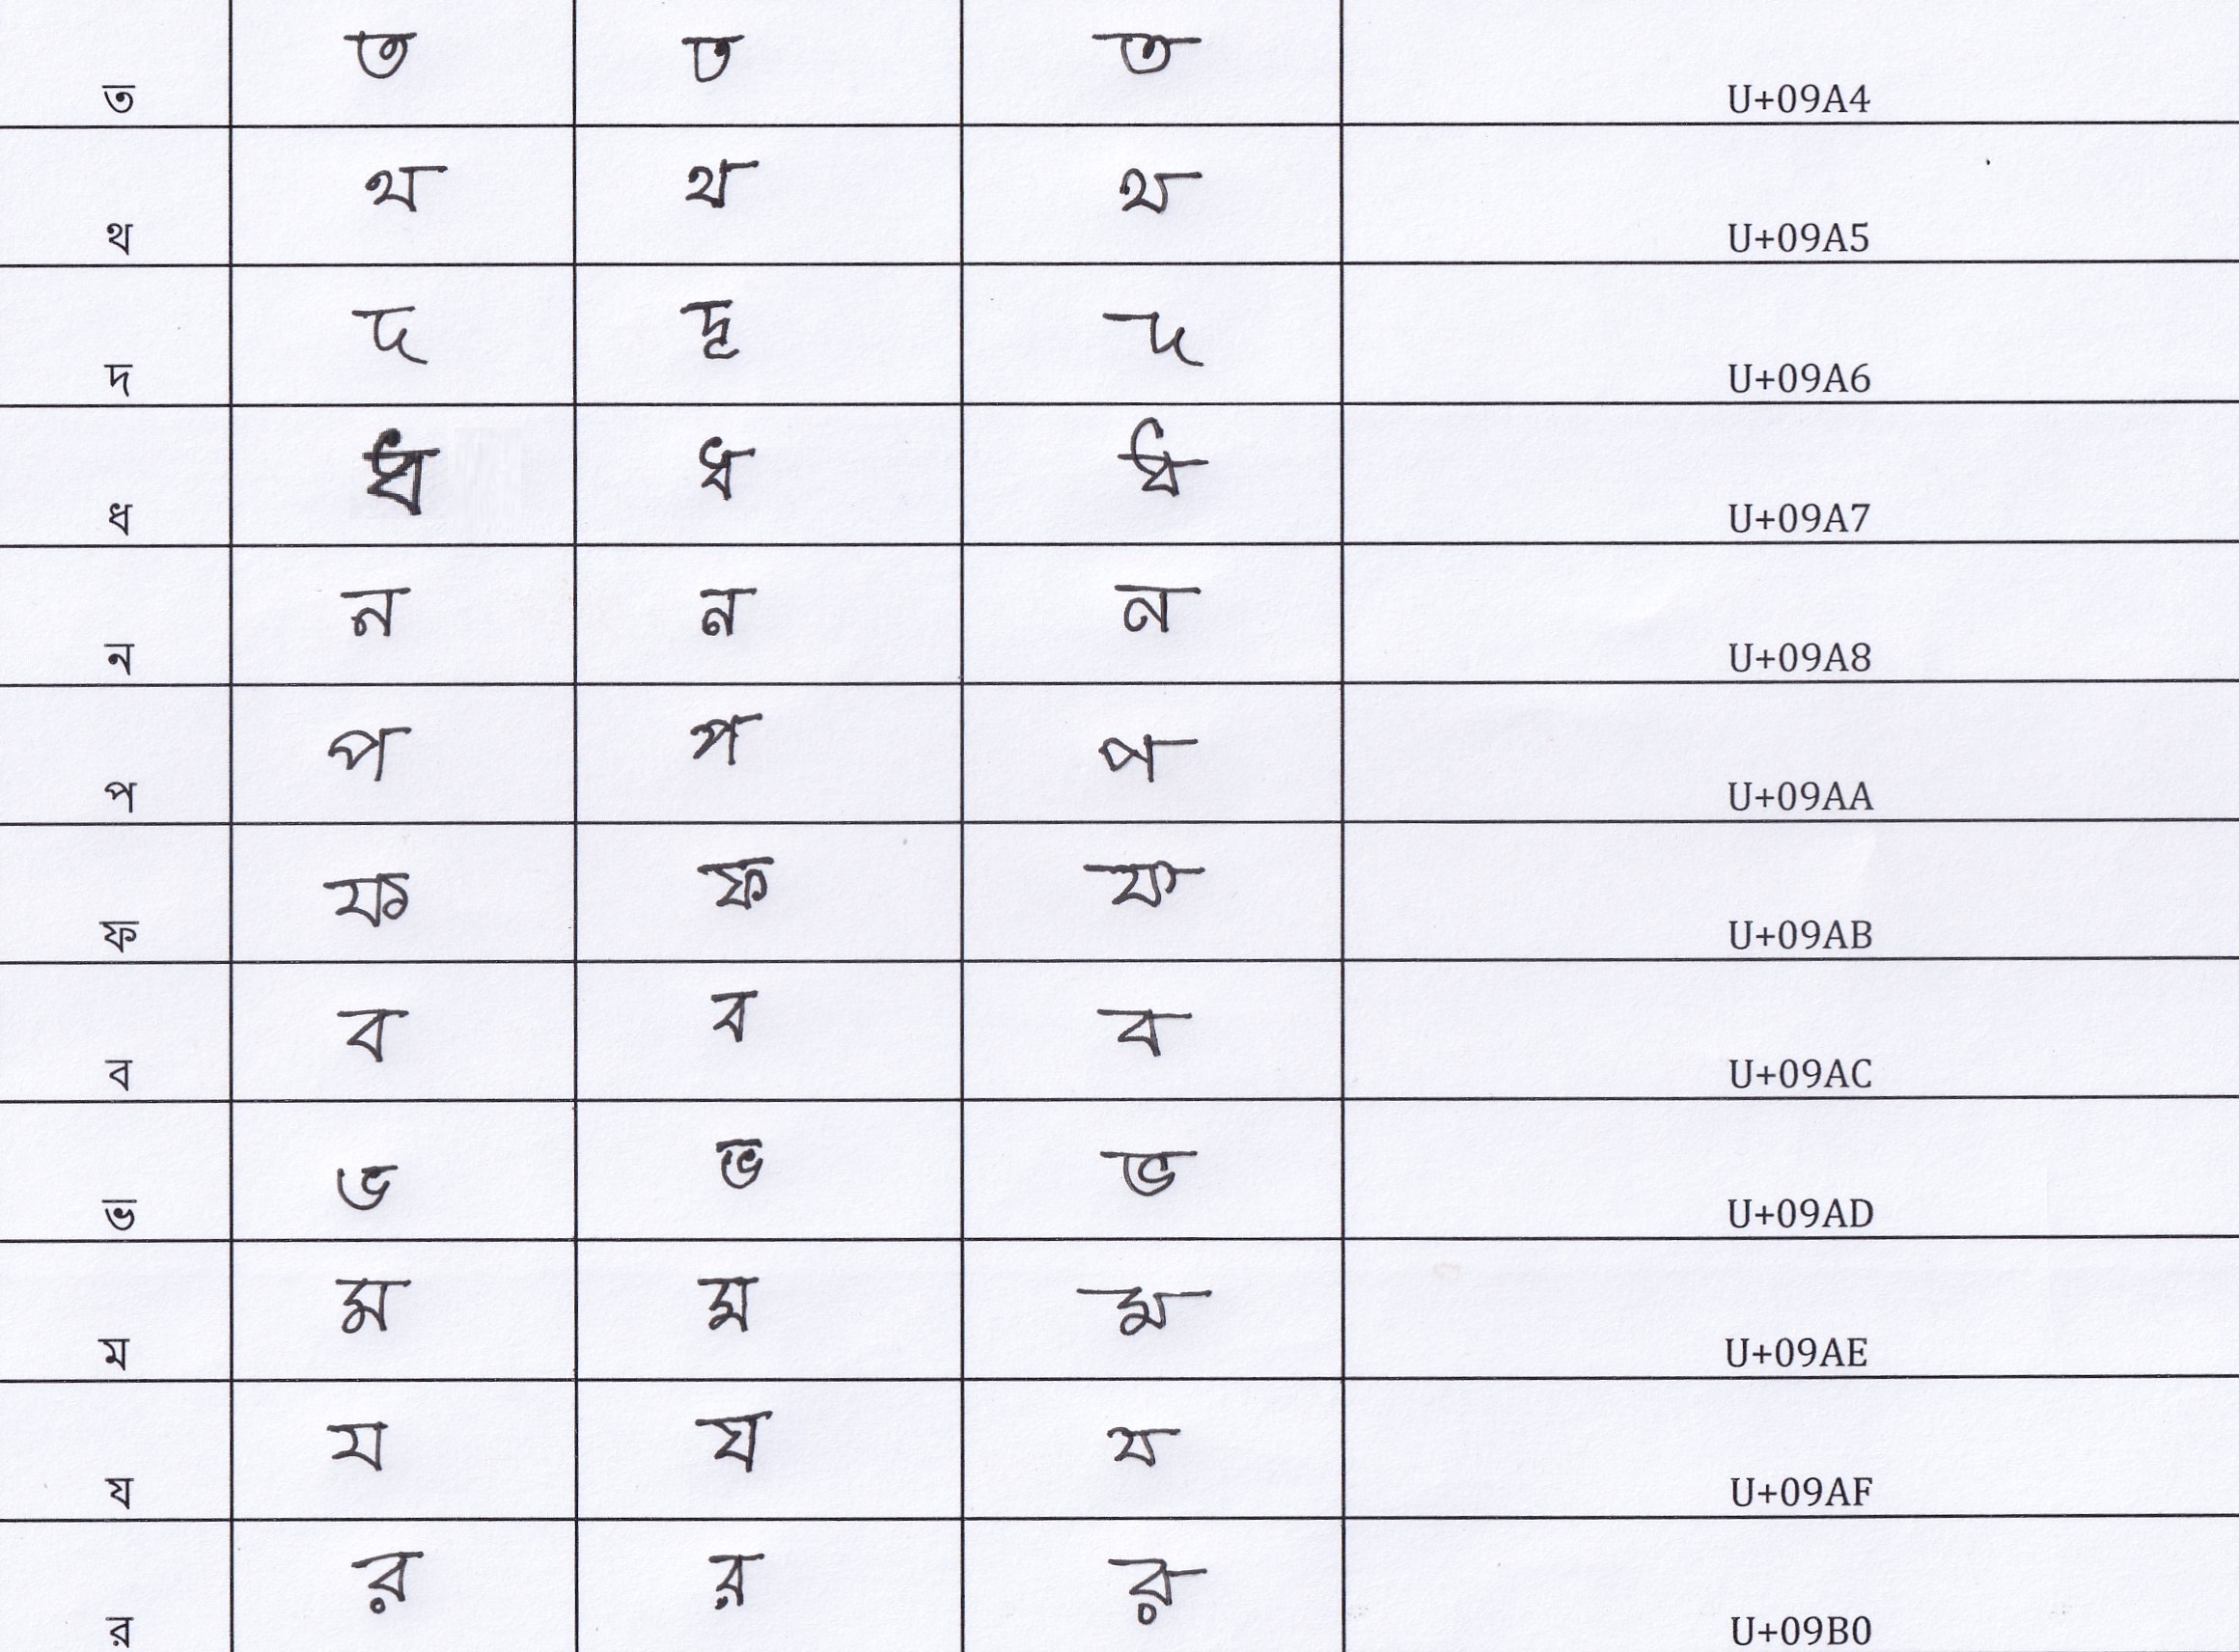 ত ত ত ত U+09A4
থ থ থ থ U+09A5
দ দ দৃ দ U+09A6
ধ ধ ধ ধ U+09A7
ন ন ন ন U+09A8
প প প প U+09AA
ফ ফ ফ ফ U+09AB
ব ব ব ব U+09AC
ভ ভ ভ ভ U+09AD
ম ম ম ম U+09AE
য য য য U+09AF
র র র র U+09B0